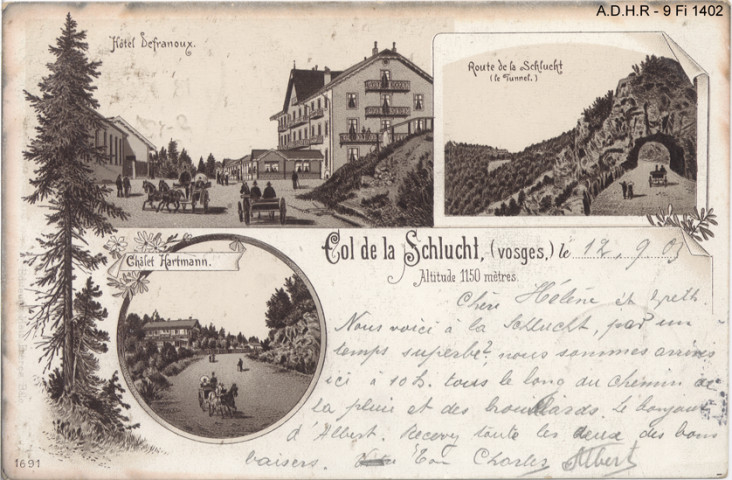 A.D.H.R - 9 Fi 1402
Hôtel Defranoux.
Route de la Schlucht
(le Tunnel.)
Châlet Hartmann.
Col de la Schlucht, (vosges,) le 12. 9 03
Altitude 1150 mètres.
Chère Hélène et Greth.
Nous voici à la Schlucht, par un
temps superbe, nous sommes arrivés
ici à 10h. tous le long du chemin de
la pluie et des brouillards. Le bonjour
d'Albert. Recevez toute les deux des bons
baisers. Ton Charles Albert
1691